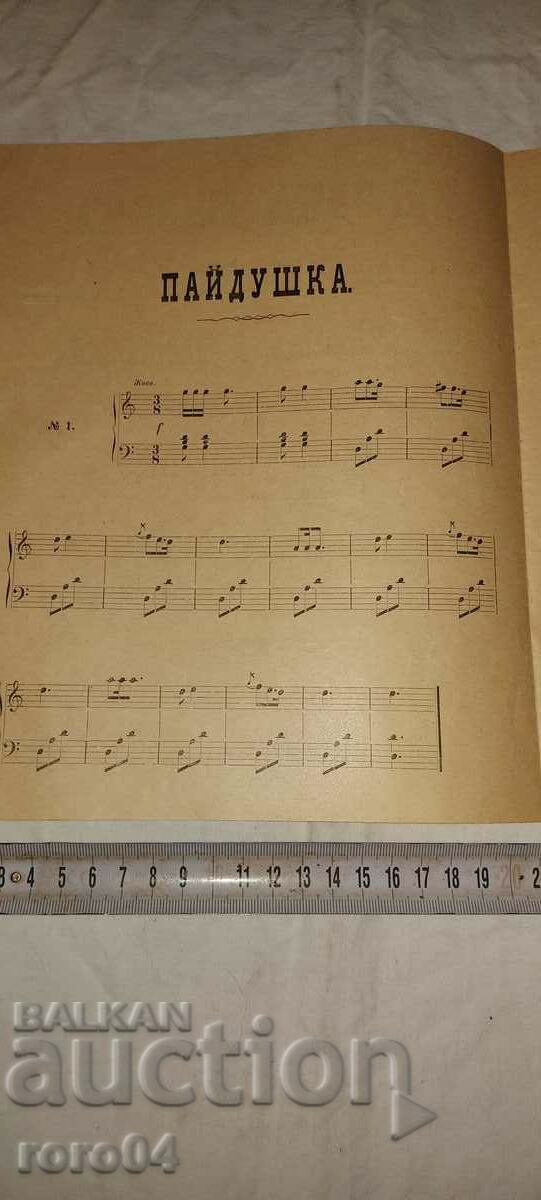 ПАЙДУШКА.
Живо.
№ 1.
3 8
f
3 8
3 4 5 6 7 8 9 11 12 13 14 15 16 17 18 19 20 2
BALKAN
auction
roro04